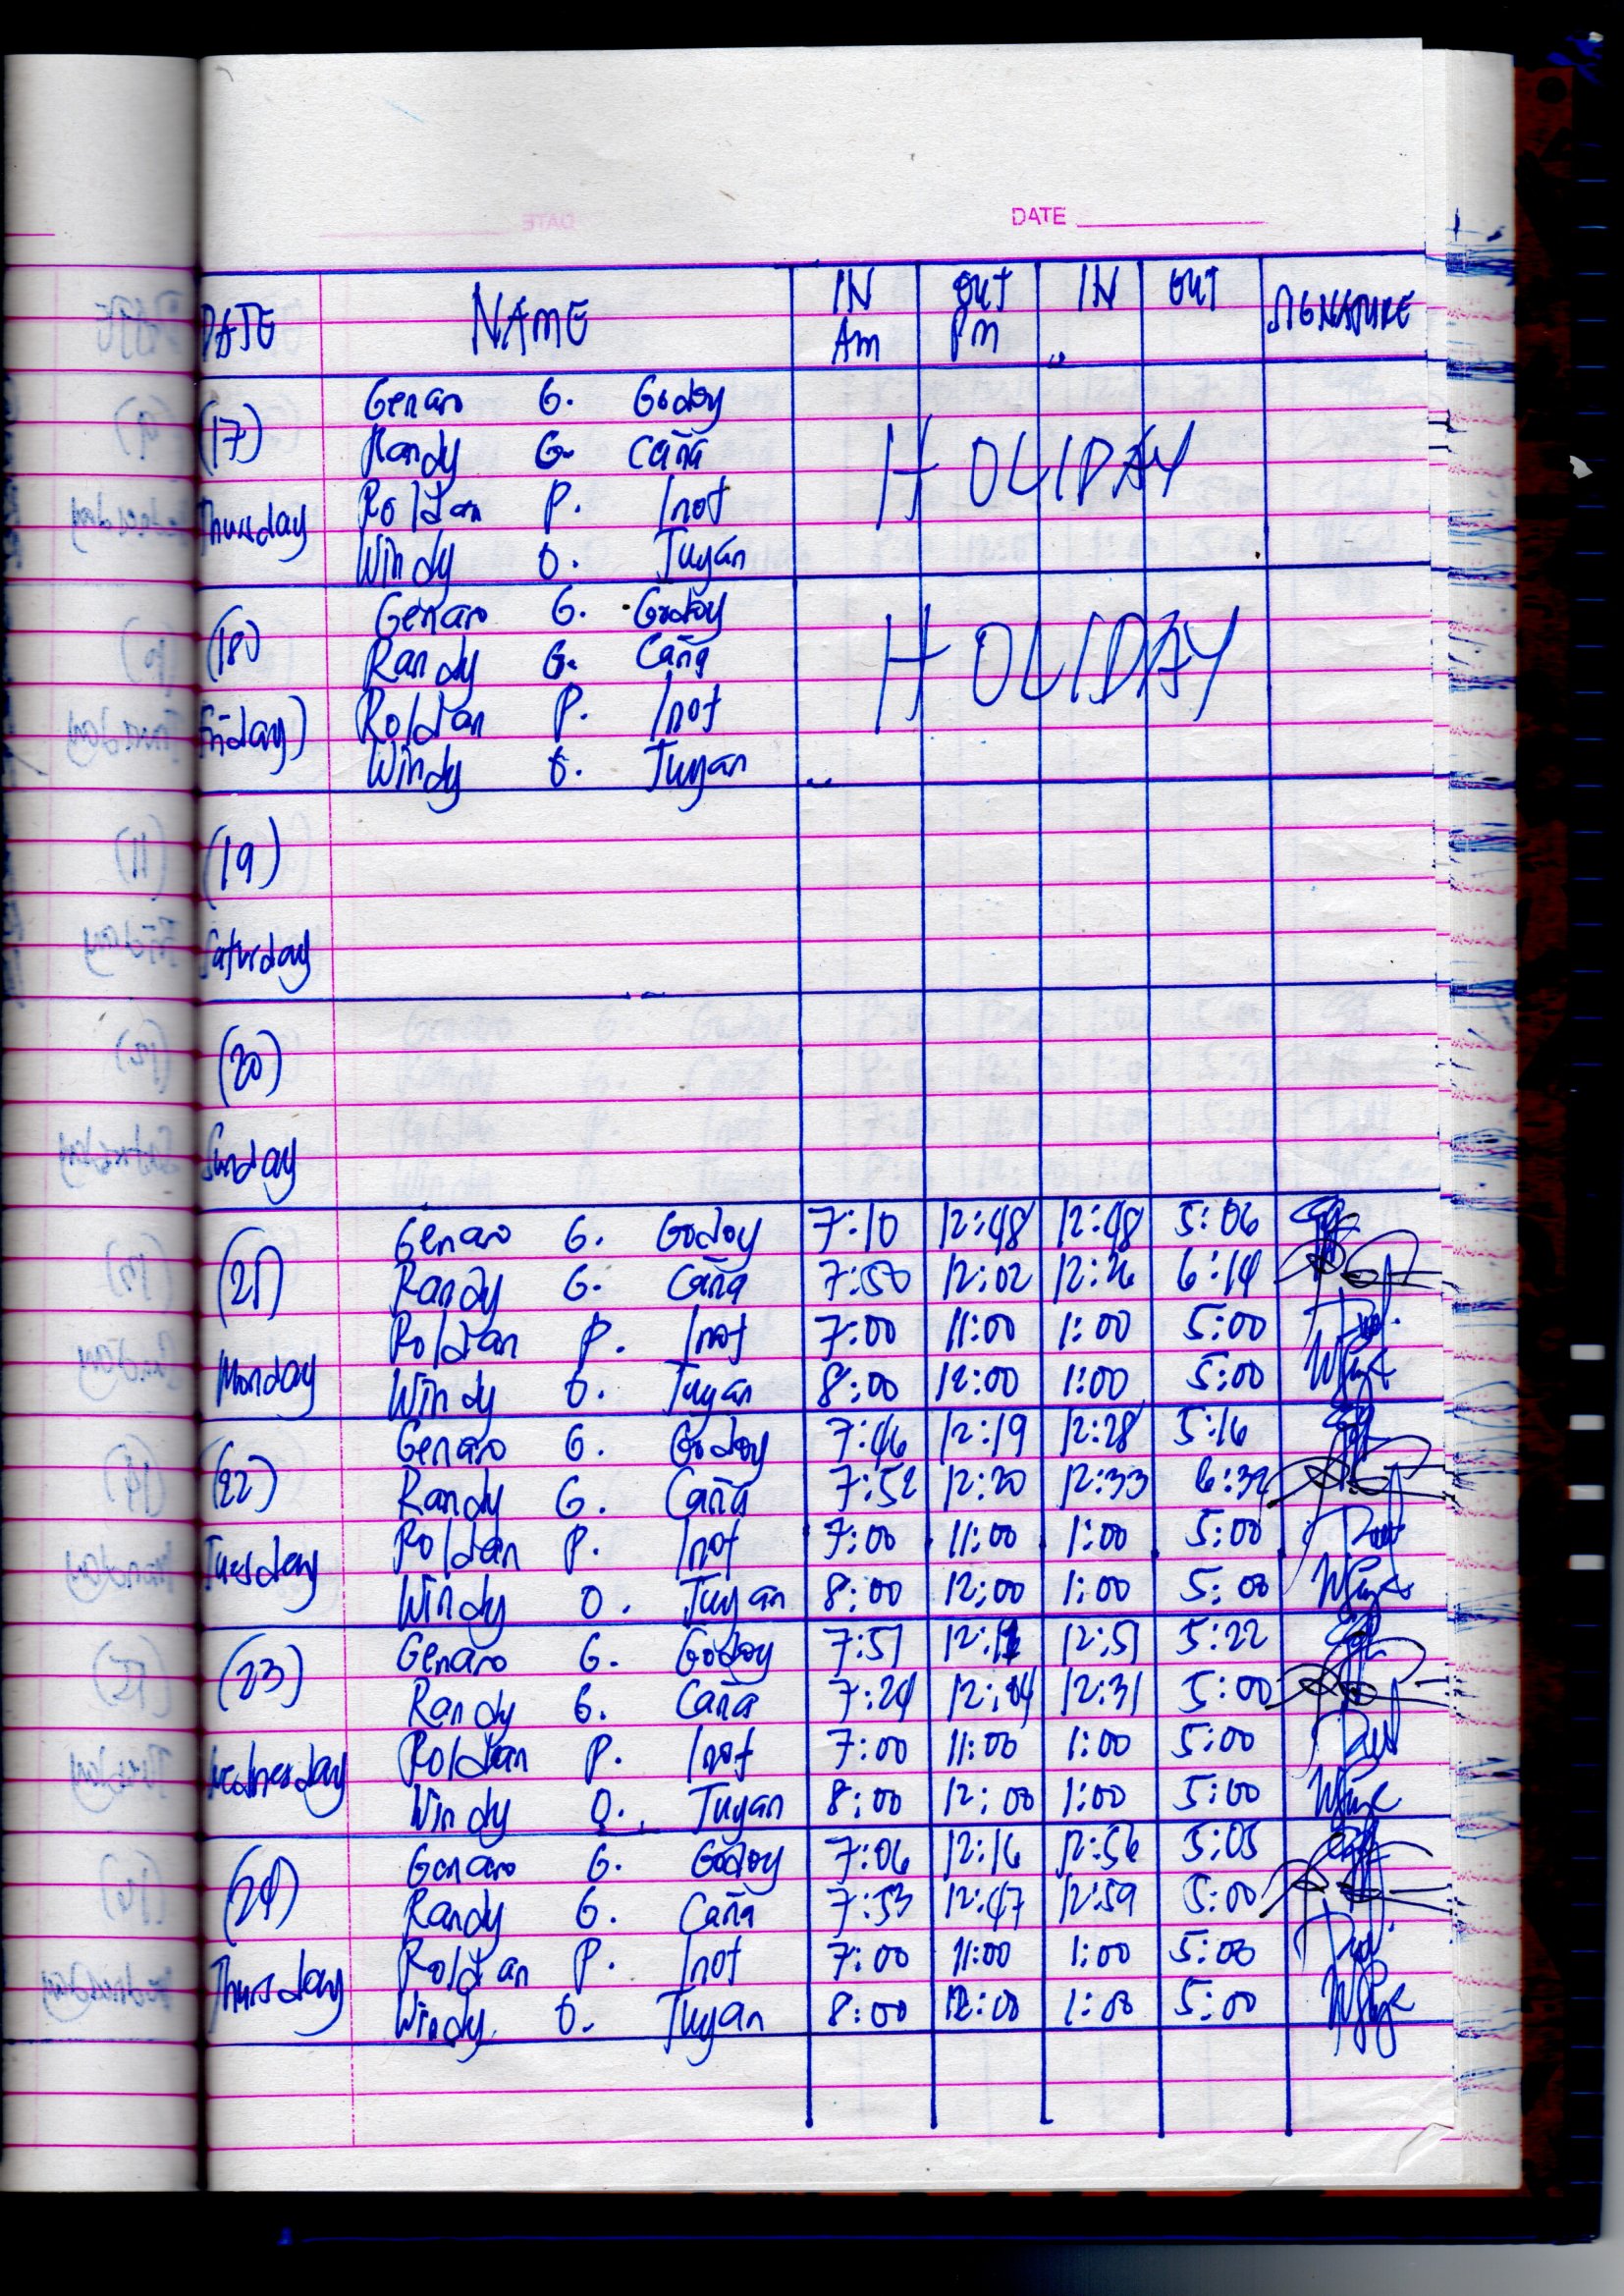 DATE
DATE NAME IN Am OUT Pm IN OUT SIGNATURE
(17) Thursday
Genaro G. Godoy
Randy G. Caña
Roldan P. Inot
Windy O. Tuyan
HOLIDAY
(18) Friday)
Genaro G. Godoy
Randy G. Caña
Roldan P. Inot
Windy O. Tuyan
HOLIDAY
(19)
Saturday
(20)
Sunday
(21) Monday
Genaro G. Godoy 7:10 12:48 12:48 5:06
Randy G. Caña 7:50 12:02 12:26 6:14
Roldan P. Inot 7:00 11:00 1:00 5:00
Windy O. Tuyan 8:00 12:00 1:00 5:00
(22) Tuesday
Genaro G. Godoy 7:46 12:19 12:28 5:16
Randy G. Caña 7:52 12:20 12:33 6:32
Roldan P. Inot 7:00 11:00 1:00 5:00
Windy O. Tuyan 8:00 12:00 1:00 5:00
(23) Wednesday
Genaro G. Godoy 7:51 12:51 5:22
Randy G. Caña 7:24 12:31 5:00
Roldan P. Inot 7:00 11:00 1:00 5:00
Windy O. Tuyan 8:00 12:00 1:00 5:00
(24) Thursday
Genaro G. Godoy 7:06 12:16 12:56 5:05
Randy G. Caña 7:53 12:47 12:59 5:00
Roldan P. Inot 7:00 11:00 1:00 5:00
Windy O. Tuyan 8:00 12:00 1:00 5:00